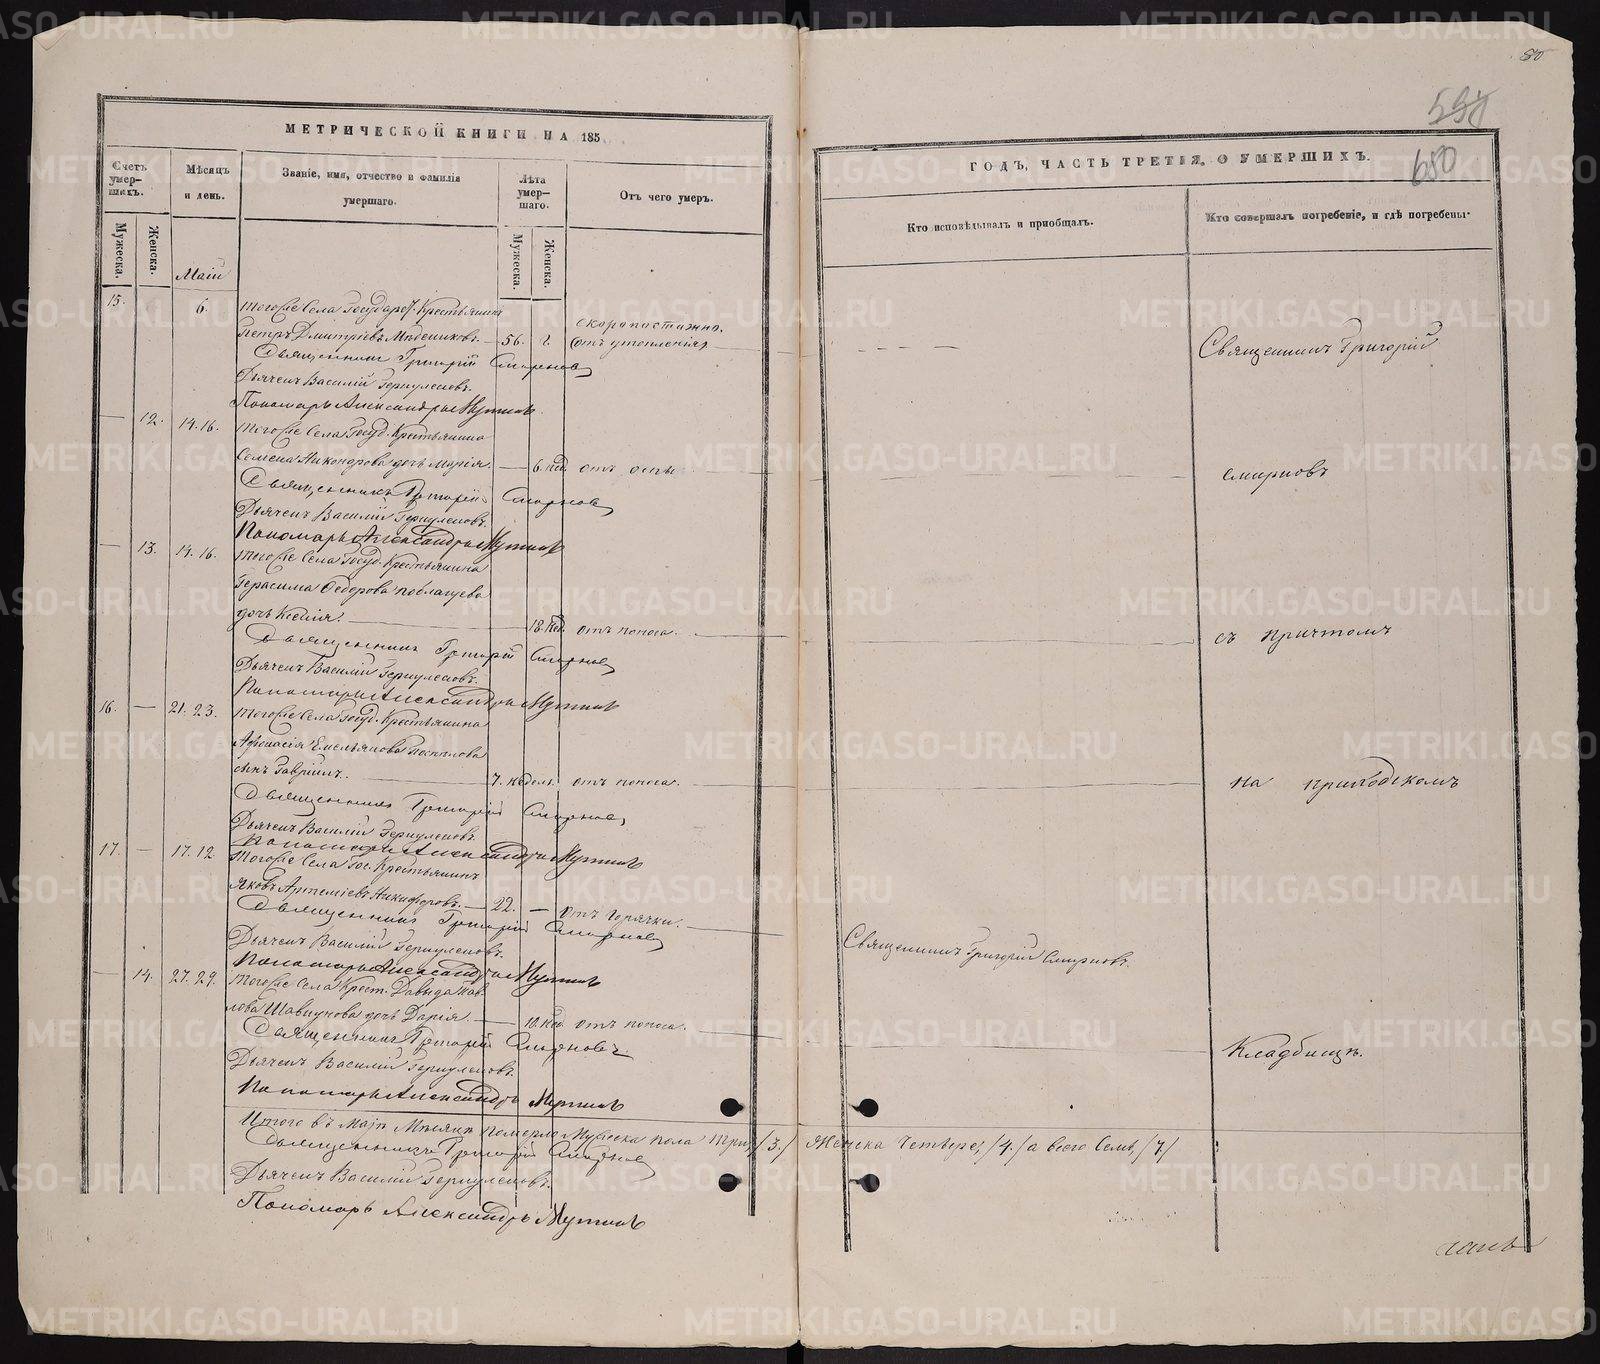 80
594
680
МЕТРИЧЕСКОЙ КНИГИ НА 185
ГОДЪ, ЧАСТЬ ТРЕТІЯ, О УМЕРШИХЪ.
Счетъ умер-шихъ.
Мужеска.
Женска.
Мѣсяцъ и день.
Званіе, имя, отчество и фамилія умершаго.
Лѣта умер-шаго.
Мужеска.
Женска.
Отъ чего умеръ.
Кто исповѣдывалъ и приобщалъ.
Кто совершалъ погребеніе, и гдѣ погребены.
Маій
15. 6. тогоже Села Государст. Крестьянинъ
Петръ Дмитріевъ 56. скоропостижно.
отъ утопленія
Священникъ Григорій Смирновъ
Дьячекъ Василій
Пономарь Александръ
12. 14. 16. тогоже Села Госуд. Крестьянина
Семена Никонорова дочь Марія. 6. нед. отъ оспы
Священникъ Григорій Смирновъ
Дьячекъ Василій
Пономарь Александръ
13. 14. 16. тогоже Села Госуд. Крестьянина
Герасима Федорова
дочь Ксенія. 18. нед. отъ поноса.
Священникъ Григорій Смирновъ
Дьячекъ Василій
Пономарь Александръ
16. 21. 23. тогоже Села Госуд. Крестьянина
Афонасія Емельянова Поспелова
сынъ Гавріилъ. 7. недель. отъ поноса.
Священникъ Григорій Смирновъ
Дьячекъ Василій
Пономарь Александръ
17. 17. 12 тогоже Села Гос. Крестьянинъ
Яковъ Артеміевъ Никифоровъ. 22. отъ горячки.
Священникъ Григорій Смирновъ
Дьячекъ Василій
Пономарь Александръ
14. 27. 29. тогоже Села Крест. Давыда Пав-
лова дочь Дарія. 10. нед. отъ поноса.
Священникъ Григорій Смирновъ
Дьячекъ Василій
Пономарь Александръ
Итого въ Маіи Месяце померло Мужеска пола три /3./ Женска Четверо, /4./ а всего Семь, /7./
Священникъ Григорій Смирновъ
Дьячекъ Василій
Пономарь Александръ
Священникъ Григорій Смирновъ.
Священникъ Григорій
Смирновъ
съ причтомъ
на приходскомъ
Кладбище.
METRIKI.GASO-URAL.RU